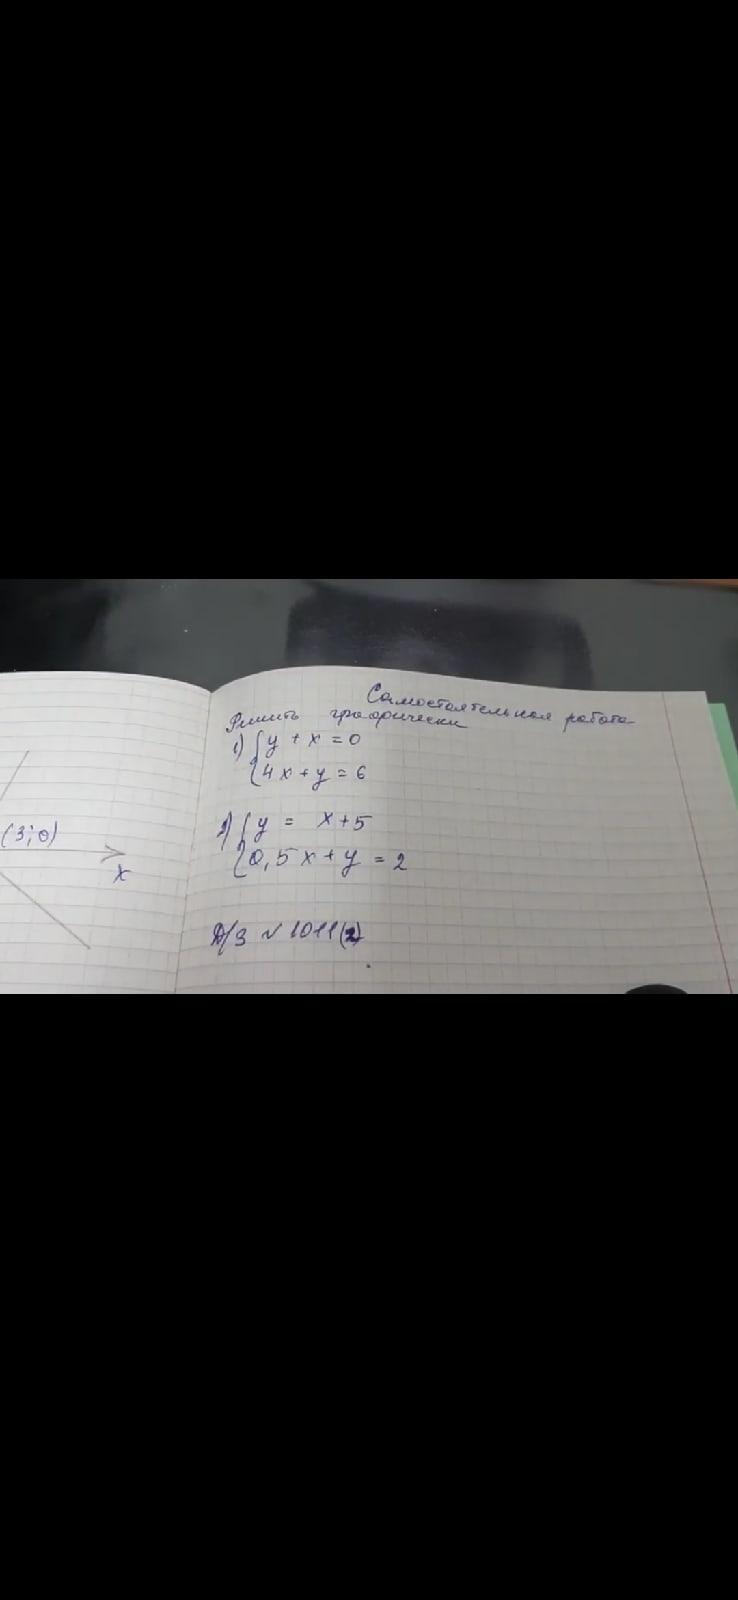 Самостоятельная работа
Решить графически
1) { y + x = 0
{ 4x + y = 6
(3; 0)
x
2) { y = x + 5
{ 0,5x + y = 2
Д/З № 1011(2)